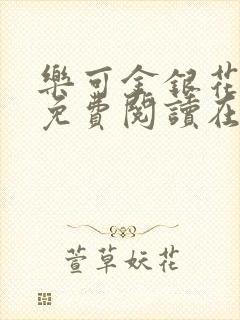 樂可金銀花
免費閱讀在
萱草妖花